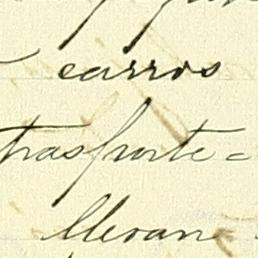 carros
trasporte=
lleran